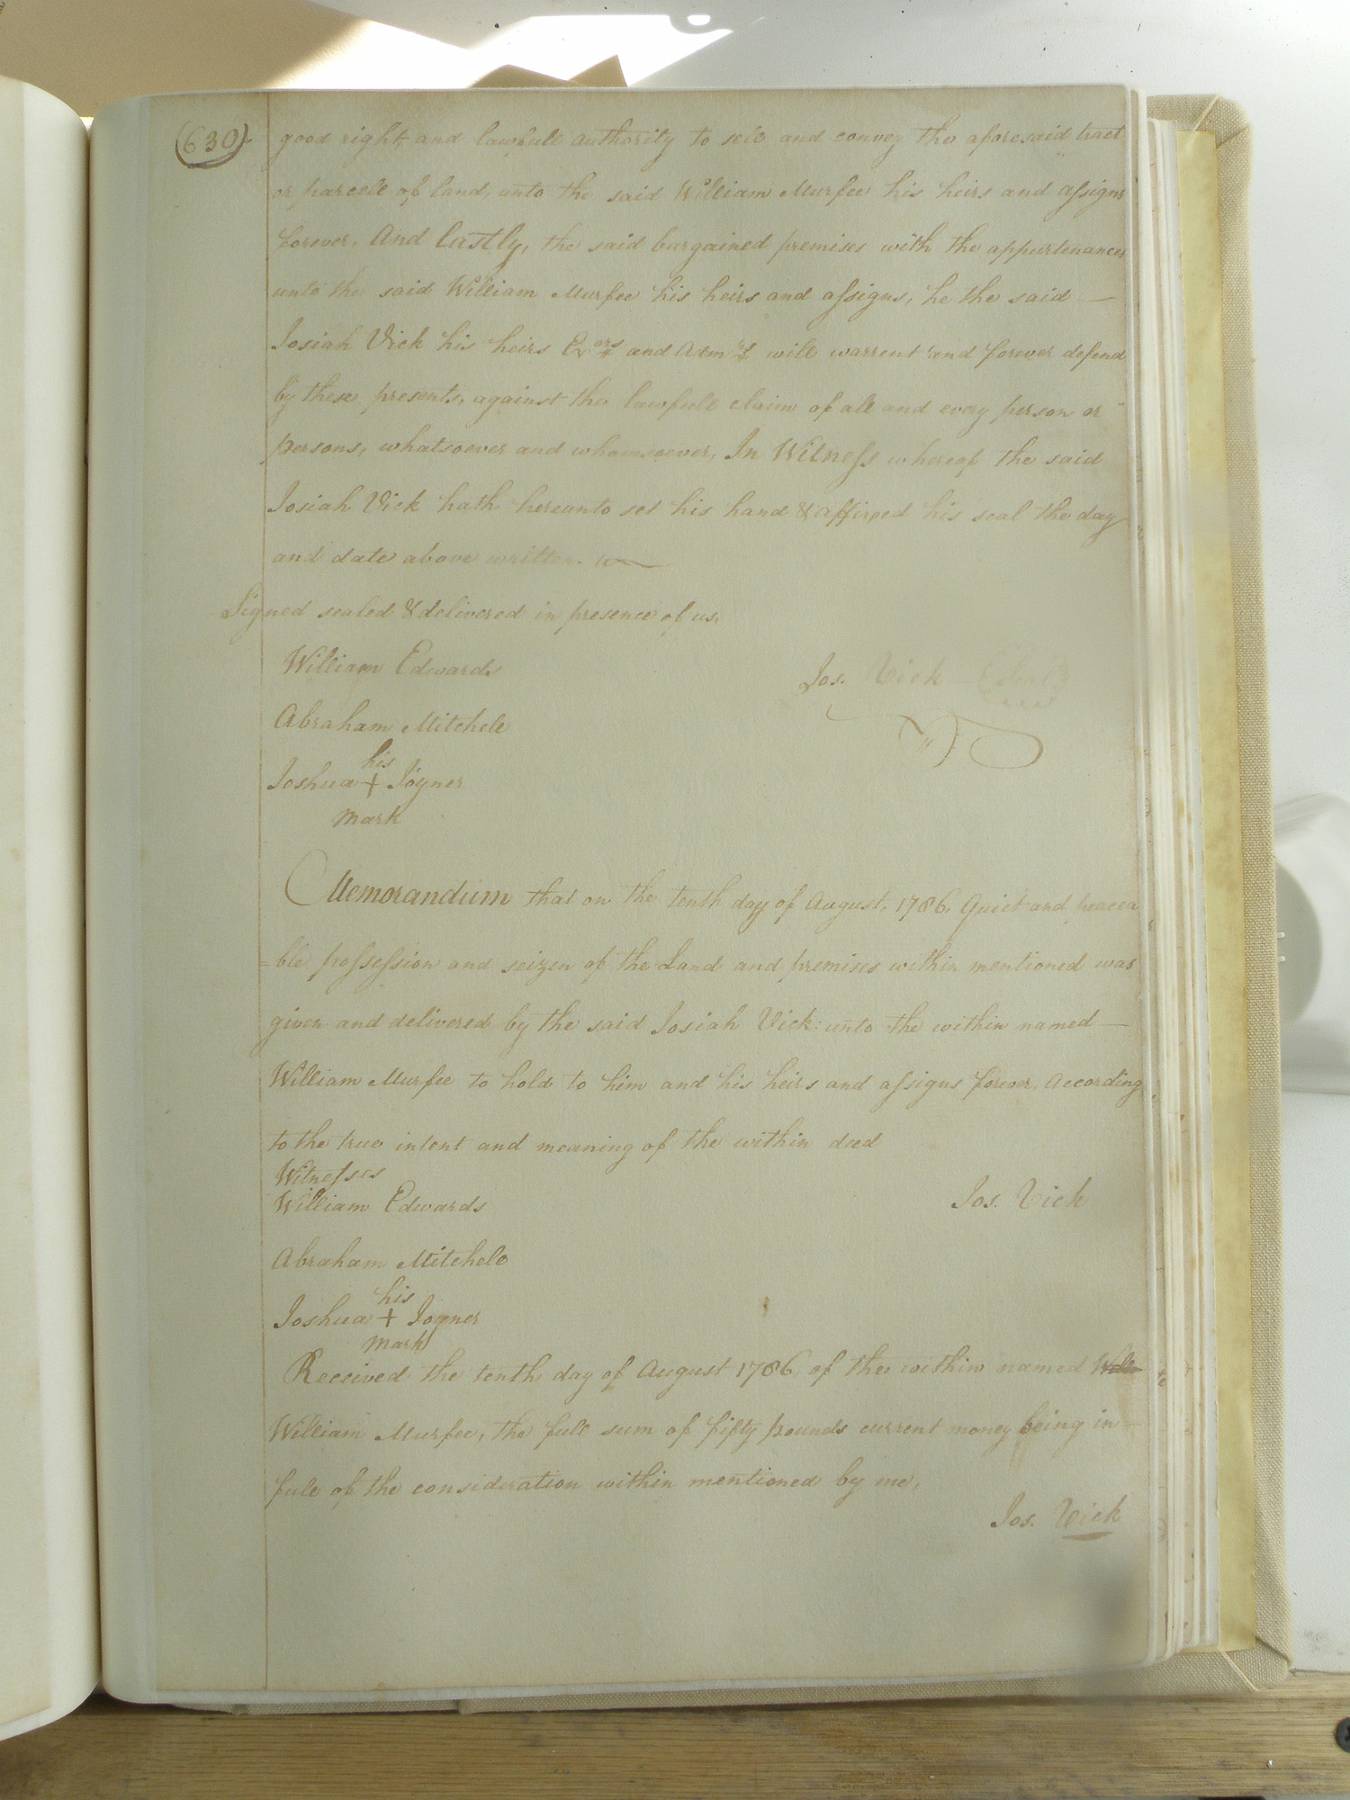 (630)
good right, and lawfull authority to sell and convey the aforesaid tract
or parcell of land, unto the said William Murfee his heirs and assigns
forever. And Lastly, the said bargained premises with the appurtenances
unto the said William Murfee his heirs and assigns, he the said —
Josiah Vick his heirs Exors and Admrs will warrent and forever defend
by these presents, against the lawfull claim of all and every person or
persons, whatsoever and whomsoever, In Witness whereof the said
Josiah Vick hath hereunto set his hand & affixed his seal the day
and date above written.
Signed sealed & delivered in presence of us.
William Edwards
Jos. Vick (Seal)
Abraham Mitchell
his
Joshua + Joyner
mark
Memorandum that on the tenth day of August, 1786. Quiet and peacea
=ble possession and seizen of the Land and premises within mentioned was
given and delivered by the said Josiah Vick unto the within named —
William Murfee to hold to him and his heirs and assigns forever, According
to the true intent and meaning of the within deed
Witnesses
William Edwards
Jos. Vick
Abraham Mitchell
his
Joshua + Joyner
mark
Received the tenth day of August 1786 of the within named
William Murfee, the full sum of fifty pounds current money being in
full of the consideration within mentioned by me,
Jos. Vick